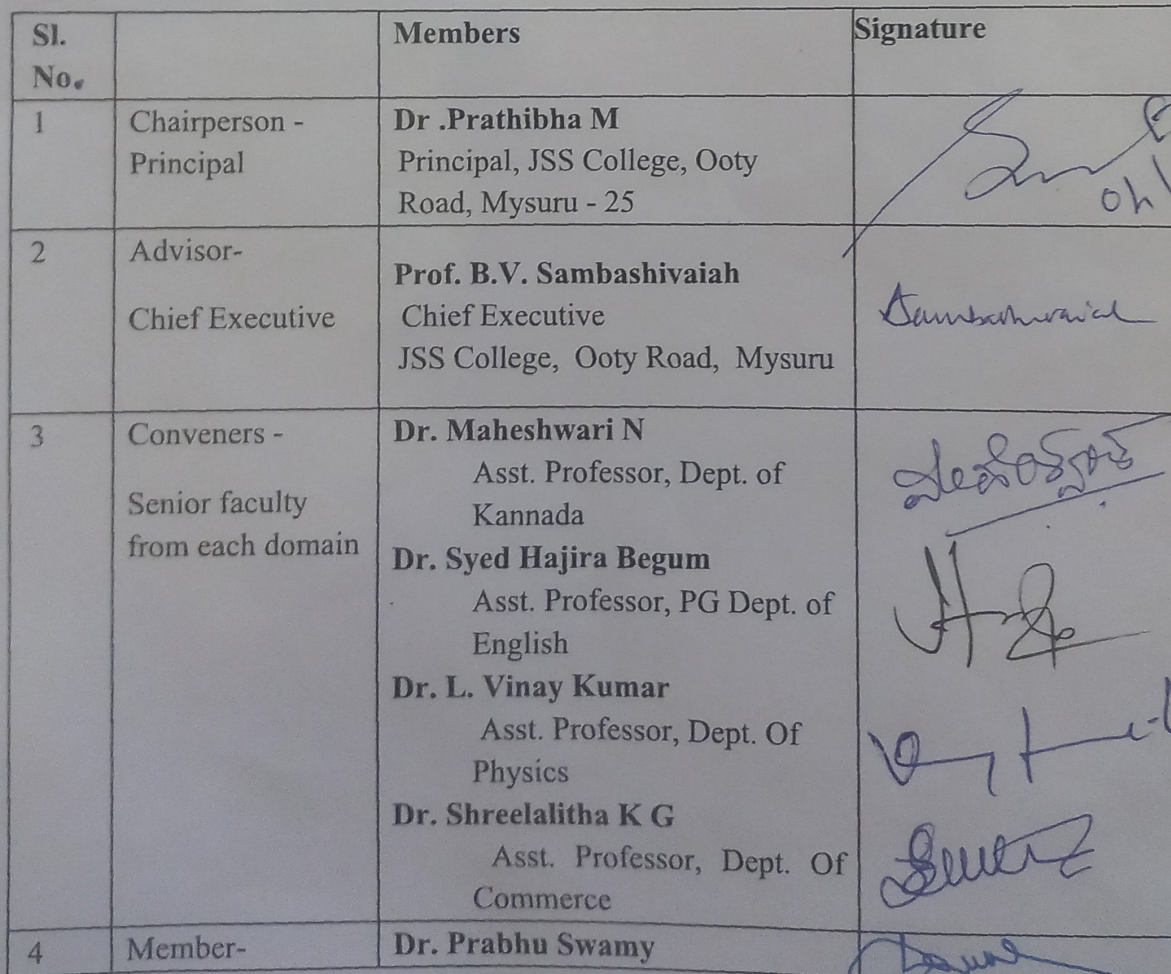 Sl. No. Members Signature
1 Chairperson - Principal
Dr .Prathibha M
Principal, JSS College, Ooty
Road, Mysuru - 25
2 Advisor-
Chief Executive
Prof. B.V. Sambashivaiah
Chief Executive
JSS College, Ooty Road, Mysuru
Sambashivaiah
3 Conveners -
Senior faculty
from each domain
Dr. Maheshwari N
Asst. Professor, Dept. of
Kannada
Dr. Syed Hajira Begum
Asst. Professor, PG Dept. of
English
Dr. L. Vinay Kumar
Asst. Professor, Dept. Of
Physics
Dr. Shreelalitha K G
Asst. Professor, Dept. Of
Commerce
4 Member-
Dr. Prabhu Swamy